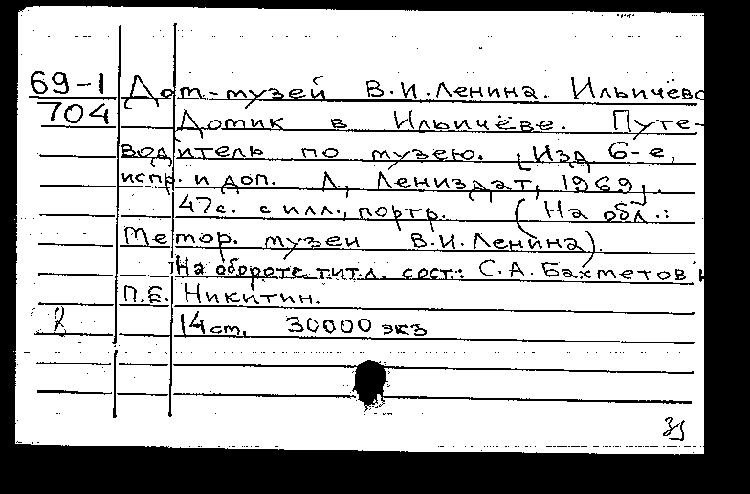 69-1 Дом-музей В.И.Ленина. Ильичёво
704 Домик в Ильичёве. Путе-
водитель по музею. [Изд. 6-е,
испр. и доп. Л., Лениздат, 1969].
47с. с илл., портр. (На обл.:
Метор. музеи В.И.Ленина).
На обороте тит.л. сост.: С.А.Бахметов и
П.Е. Никитин.
14см. 30000 экз